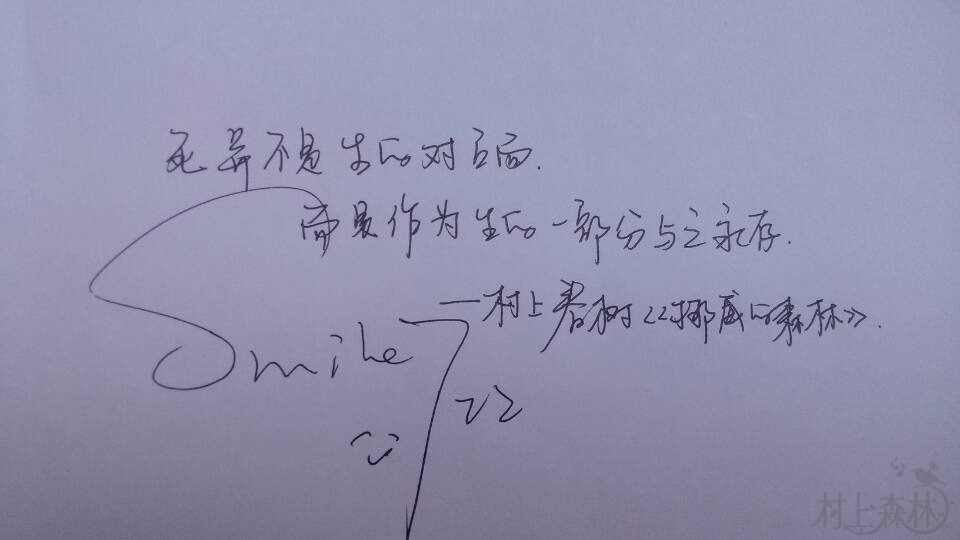 死并不是生的对立面.
而是作为生的一部分与之永存.
——村上春树《挪威的森林》.
Smile
722
村上森林